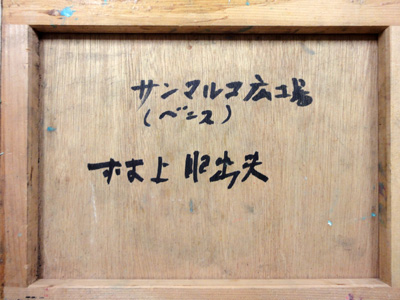 サンマルコ広場
(ベニス)
村上肥出夫